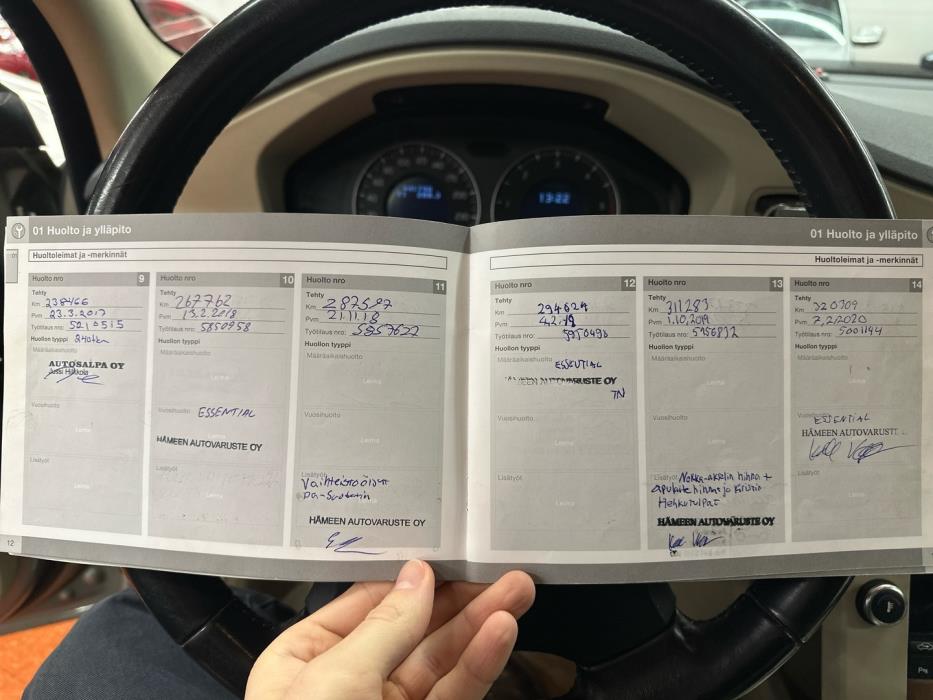 01 Huolto ja ylläpito
Huoltoleimat ja -merkinnät
Huolto nro 9
Tehty
Km 238466
Pvm 23.3.2017
Työtilaus nro: 5210515
Huollon tyyppi 240tkm
Määräaikaishuolto
AUTOSALPA OY
Jussi
Vuosihuolto
Leima
Lisätyöt
Leima
12
Huolto nro 10
Tehty
Km 267762
Pvm 13.2.2018
Työtilaus nro: 5850958
Huollon tyyppi
Määräaikaishuolto
Leima
Vuosihuolto ESSENTIAL
HÄMEEN AUTOVARUSTE OY
Lisätyöt
Leima
Huolto nro 11
Tehty
Km 287587
Pvm 21.11.18
Työtilaus nro: 5957622
Huollon tyyppi
Määräaikaishuolto
Leima
Vuosihuolto
Leima
Lisätyöt
HÄMEEN AUTOVARUSTE OY
01 Huolto ja ylläpito
Huoltoleimat ja -merkinnät
Huolto nro 12
Tehty
Km 294624
Pvm 4.2.19
Työtilaus nro: 5950498
Huollon tyyppi
Määräaikaishuolto
ESSENTIAL
HÄMEEN AUTOVARUSTE OY
TN
Vuosihuolto
Leima
Lisätyöt
Leima
Huolto nro 13
Tehty
Km 311283
Pvm 1.10.2019
Työtilaus nro: 5956832
Huollon tyyppi
Määräaikaishuolto
Leima
Vuosihuolto
Leima
Lisätyöt Nokka-akselin hihna +
apulaite hihna ja
Hehkutulpat
HÄMEEN AUTOVARUSTE OY
Huolto nro 14
Tehty
Km 320709
Pvm 7.2.2020
Työtilaus nro: 5001144
Huollon tyyppi
Määräaikaishuolto
Vuosihuolto
ESSENTIAL
HÄMEEN AUTOVARUST
Lisätyöt
Leima
13:22